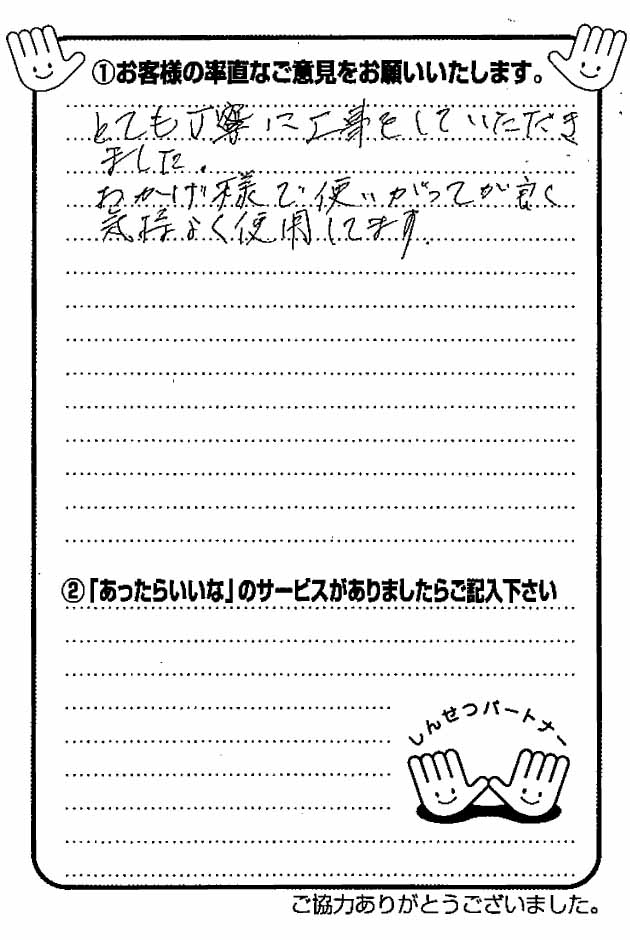 ①お客様の率直なご意見をお願いいたします。
とても丁寧に工事をしていただき
ました.
おかげ様で使いがってが良く
気持よく使用してます.
②「あったらいいな」のサービスがありましたらご記入下さい
しんせつパートナー
ご協力ありがとうございました。